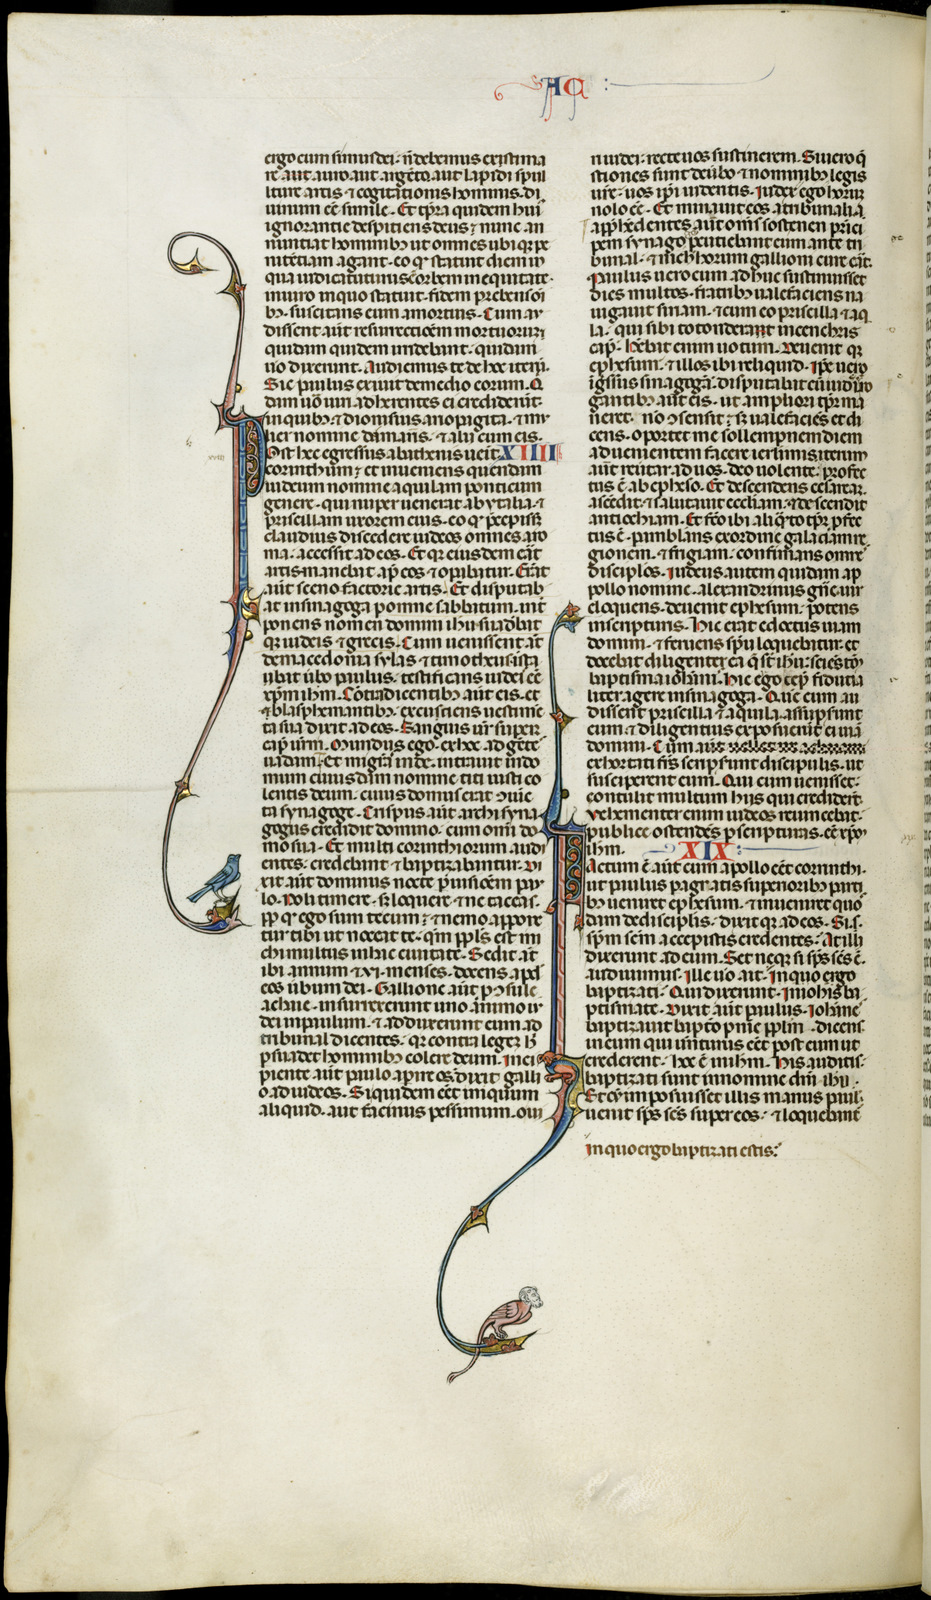 AC
ergo cum simus dei · ñ debemus existima
re aut auro aut argēto aut lapidi scul
liture artis ⁊ cogitationis hominis · di
uinum eē simile · Et tp̄ra quidem hui9
ignorantie despiciens deus ⁊ nunc an
nuntiat hominib3 ut omnes ubiq3 pe
nitētiam agant · eo q̄ statuit diem in
qua iudicaturus ē orbem in equitate ·
in uiro in quo statuit · fidem prebens oī
b3 · suscitans eum a mortuis · Cum au
dissent aūt resurrectiōem mortuorum
quidam quidem iridebant · quidam
uō dixerunt · Audiemus te de hoc iterū ·
Sic paulus exiuit de medio eorum · Q
dam uō uiri adherentes ei crediderūt ·
in quib3 ⁊ dionisius ariopagita · ⁊ mu
lier nomine damaris · ⁊ alii cum eis ·
Post hec egressus ab athenis uenit XIIII
corinthum · et inueniens quendam
iudeum nomine aquilam ponticum
genere · qui nuper uenerat ab ytalia · ⁊
priscillam uxorem eius · eo q̄ p̄cepiss3
claudius discedere iudeos omnes a ro
ma · accessit ad eos · Et q̄ eiusdem erāt
artis manebat ap̄ eos ⁊ opabatur · Erāt
aūt scenofactorie artis · Et disputab
at in sinagoga p omne sabbatum · int̄
ponens nomen domini ihū · suadebat
q̄ iudeis ⁊ grecis · Cum uenissent aūt
de macedonia sylas ⁊ timotheus · insta
bat ūbo paulus · testificans iudeis eē
xp̄m ihm̄ · Cōtradicentib3 aūt eis · et
⁊ blasphemantib3 · excutiens uestime
ta sua dixit ad eos · Sanguis ur̄ super
cap̄ urm̄ · Mundus ego · ex hoc ad gētes
uadam · Et migrās inde · intrauit in do
mum cuiusdam nomine titi iusti co
lentis deum · cuius domus erat 9iūcta
synagoge · Crispus aūt archisyna
gogus credidit domino · cum omī do
mo sua · Et multi corinthiorum audi
entes · credebant ⁊ baptizabantur · Di
xit aūt dominus nocte p uisiōem pau
lo · Noli timere · sȝ loquere · ⁊ ne taceas ·
pp̄ q̄ ego sum tecum · ⁊ nemo appone
tur tibi ut noceat te · qm̄ ppl̄s est mi
chi multus in hac ciuitate · Sedit aūt
ibi annum ⁊ vi · menses · docens apd̄
eos ūbum dei · Gallione aūt p̄consule
achaie · insurrexerunt uno animo iu
dei in paulum · ⁊ adduxerunt eum ad
tribunal dicentes · q̄ contra legem h̄
psuadet hominib3 colere deum · Inci
piente aūt paulo aperire os · dixit galli
o ad iudeos · Si quidem eēt iniquum
aliquid · aut facinus pessimum · o uiri
n iudei · recte uos sustinerem · Si uero q̄
stiones sunt de ūbo ⁊ nominib3 legis
ur̄e · uos ip̄i uideritis · Iudex ego horum
nolo eē · Et minauit eos a tribunali ·
app̄hendentes aūt om̄s sostenen prīci
pem synagoge · percutiebant eum ante tri
bunal · ⁊ nich̄ horum gallioni cure erāt ·
Paulus uero cum adhuc sustinuisset
dies multos · fratrib3 ualefaciens na
uigauit siriam · ⁊ cum eo priscilla ⁊ aq
la · qui sibi totonderant in cenchris
cap̄ · habebat enim uotum · Deuenit q̄
ephesum · ⁊ illos ibi reliquid · Ipe uero
ingressus sinagogā · disputabat cū iudeis ·
rogantib3 aūt eis · ut ampliori tp̄r ma
neret · nō 9sensit · sȝ ualefaciēs et di
cens · oportet me sollempnem diem
aduenientem facere ierosolimis iterum
aūt reuertar ad uos · deo uolente · profec
tus ē ab epheso · Et descendens cesaream ·
ascēdit · ⁊ salutauit eccliam · ⁊ descendit
antiochiam · Et fc̄o ibi aliq̄to tp̄r pfec
tus ē · pambulans ex ordine galaciam re
gionem · ⁊ frigiam · confirmans omnes
discip̄los · Iudeus autem quidam ap
pollo nomine · alexandrinus gn̄e · uir
eloquens · deuenit ephesum · potens
in scripturis · Hic erat edoctus uiam
domini · ⁊ feruens spū loquebatur · et
docebat diligenter ea q̄ st̄ ihū · sciēs tm̄
baptisma iohānis · Hic ergo cep̄ fiducia
liter agere in sinagoga · Quē cum au
dissent priscilla ⁊ aquila · assūpserunt
eum · ⁊ diligentius exposuerūt ei uiā
domini · Cum aūt uellet
exhortati frs̄ scripserunt discipulis · ut
susciperent eum · Qui cum uenisset ·
contulit multum hiis qui crediderāt ·
Vehementer enim iudeos reuincebat ·
publice ostendēs p scripturas · eē xp̄m
ihm̄ · XIX
Factum ē aūt cum apollo eēt corinthi ·
ut paulus pagratis superiorib3 parti
b3 ueniret ephesum · ⁊ inueniret quos
dam de discip̄lis · dixit q̄ ad eos · Si s
sp̄m scm̄ accepistis credentes · At illi
dixerunt ad eum · Set neq3 si sp̄s scs̄ ē ·
audiuimus · Ille uō ait · In quo ergo
baptizati · Qui dixerunt · In iohīs ba
ptismate · Dixit aūt paulus · Iohānes
baptizauit bapto pnīe ppl̄m · dicens
in eum qui uenturus eēt post eum ut
crederent · hoc ē in ihm̄ · His auditis ·
baptizati sunt in nomine dn̄i ihū ·
Et cū imposuisset illis manus paul9 ·
uenit sp̄s scs̄ super eos · ⁊ loquebant̄
In quo ergo baptizati estis :